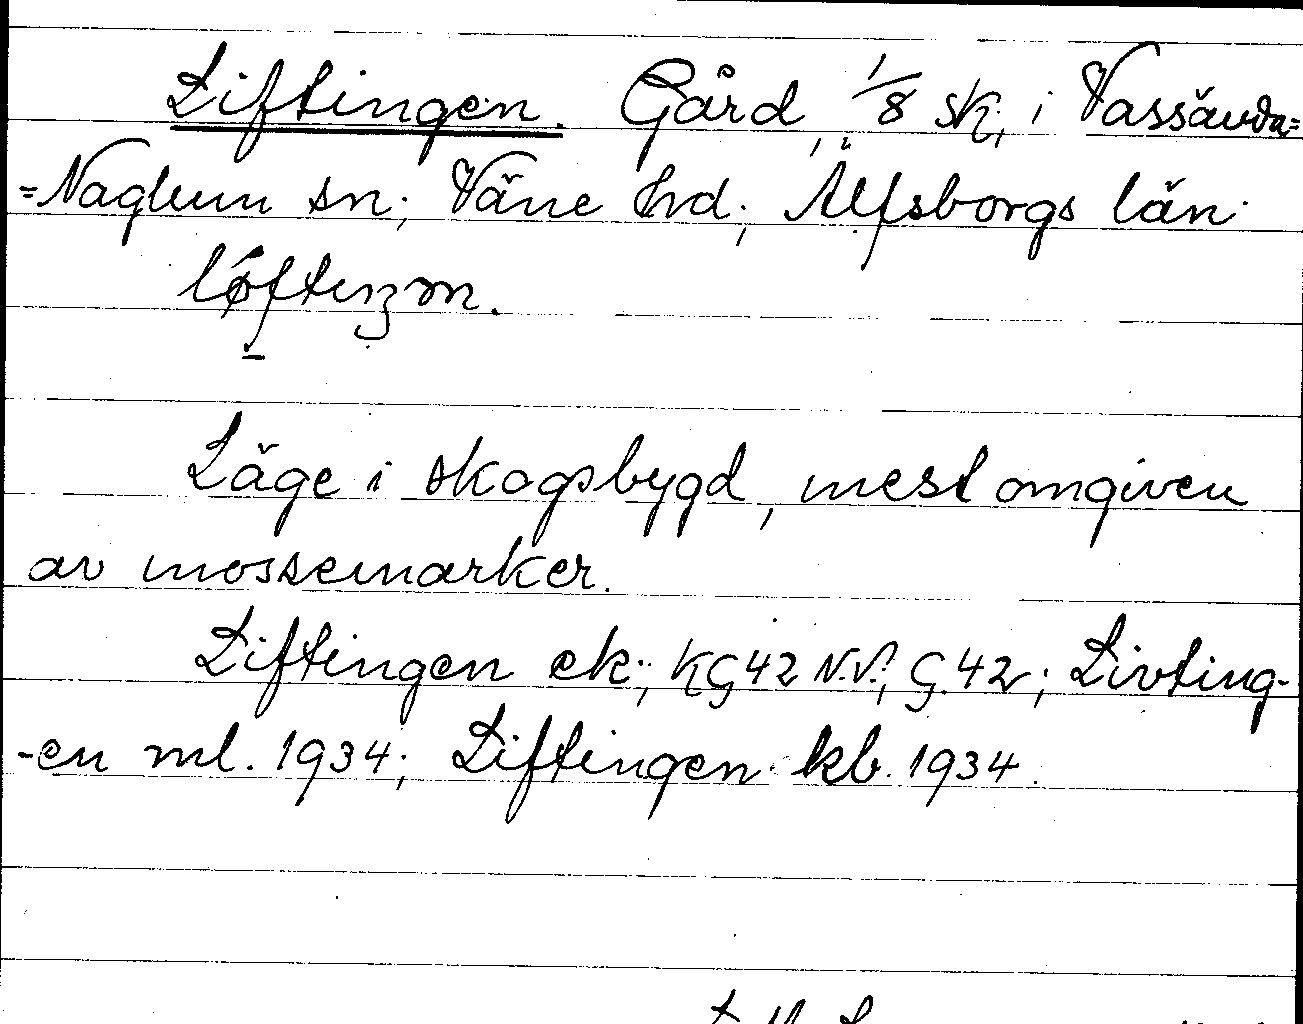 Liftingen. Gård, 1/8 sk, i Vassända=
=Naglum sn; Väne hd; Älfsborgs län.
lǿfteŋɜn.
Läge i skogsbygd, mest omgiven
av mossemarker.
Liftingen ek; KG 42 N.V.; G. 42; Livting-
-en ml. 1934; Liftingen kb. 1934.